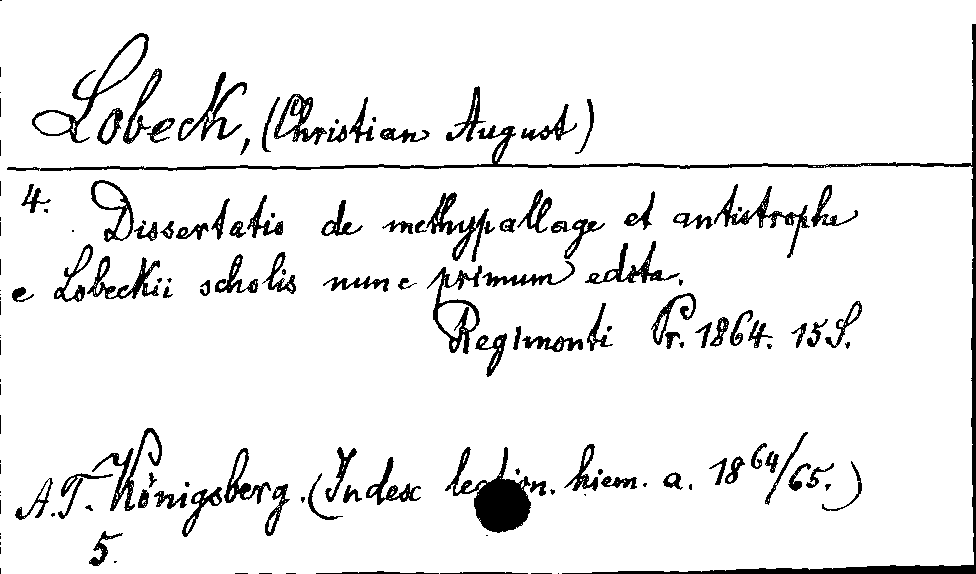 Lobeck, (Christian August)
4. Dissertatio de methypallage et antistrophe
e Lobeckii scholis nunc primum edita.
Regimonti Pr. 1864. 15 S.
A.T. Königsberg. (Index lection. hiem. a. 1864/65.)
5.